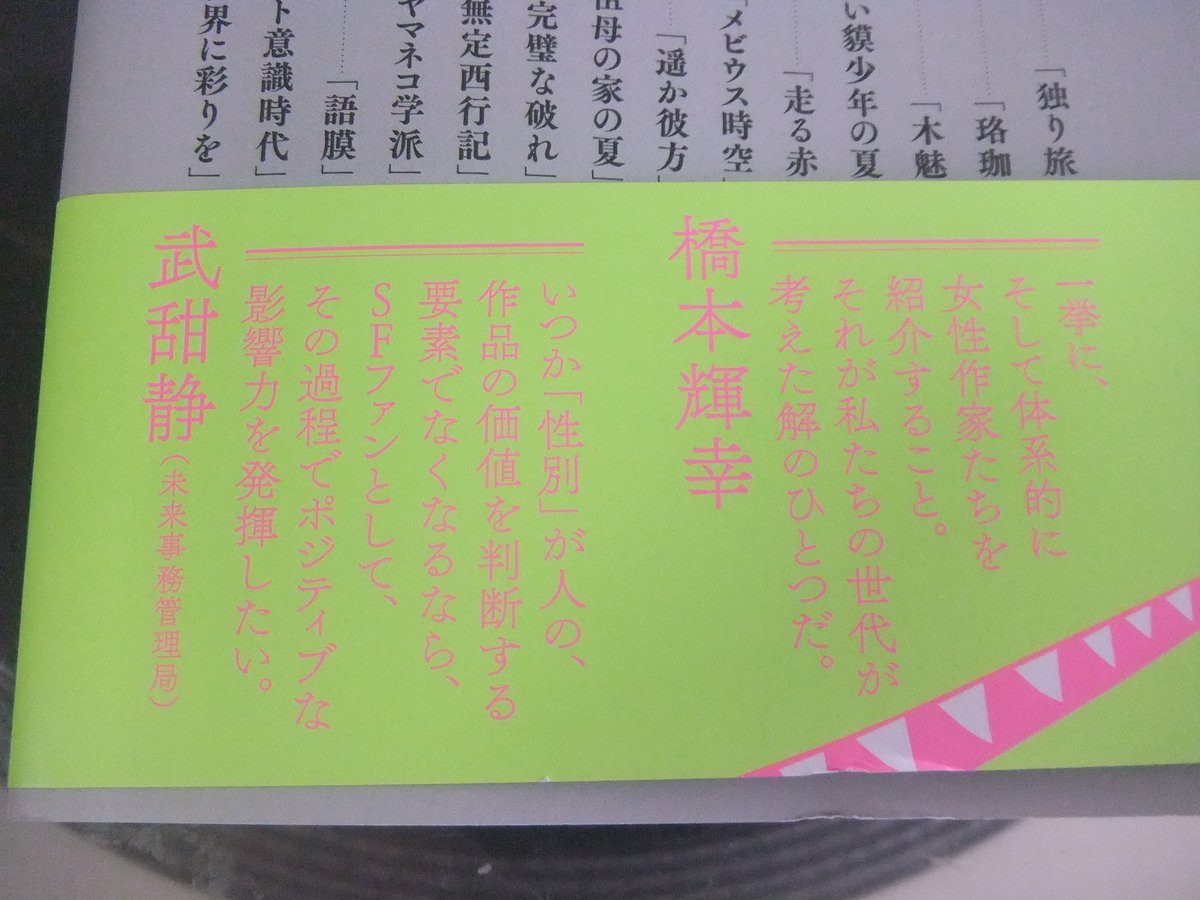 「独り旅
「珞珈
「木魅
い貘少年の夏
「走る赤
「メビウス時空
「遥か彼方」
祖母の家の夏」
完璧な破れ」
無定西行記」
ヤマネコ学派」
「語膜」
ト意識時代」
界に彩りを」
一挙に、
そして体系的に
女性作家たちを
紹介すること。
それが私たちの世代が
考えた解のひとつだ。
橋本輝幸
いつか「性別」が人の、
作品の価値を判断する
要素でなくなるなら、
SFファンとして、
その過程でポジティブな
影響力を発揮したい。
武甜静（未来事務管理局）